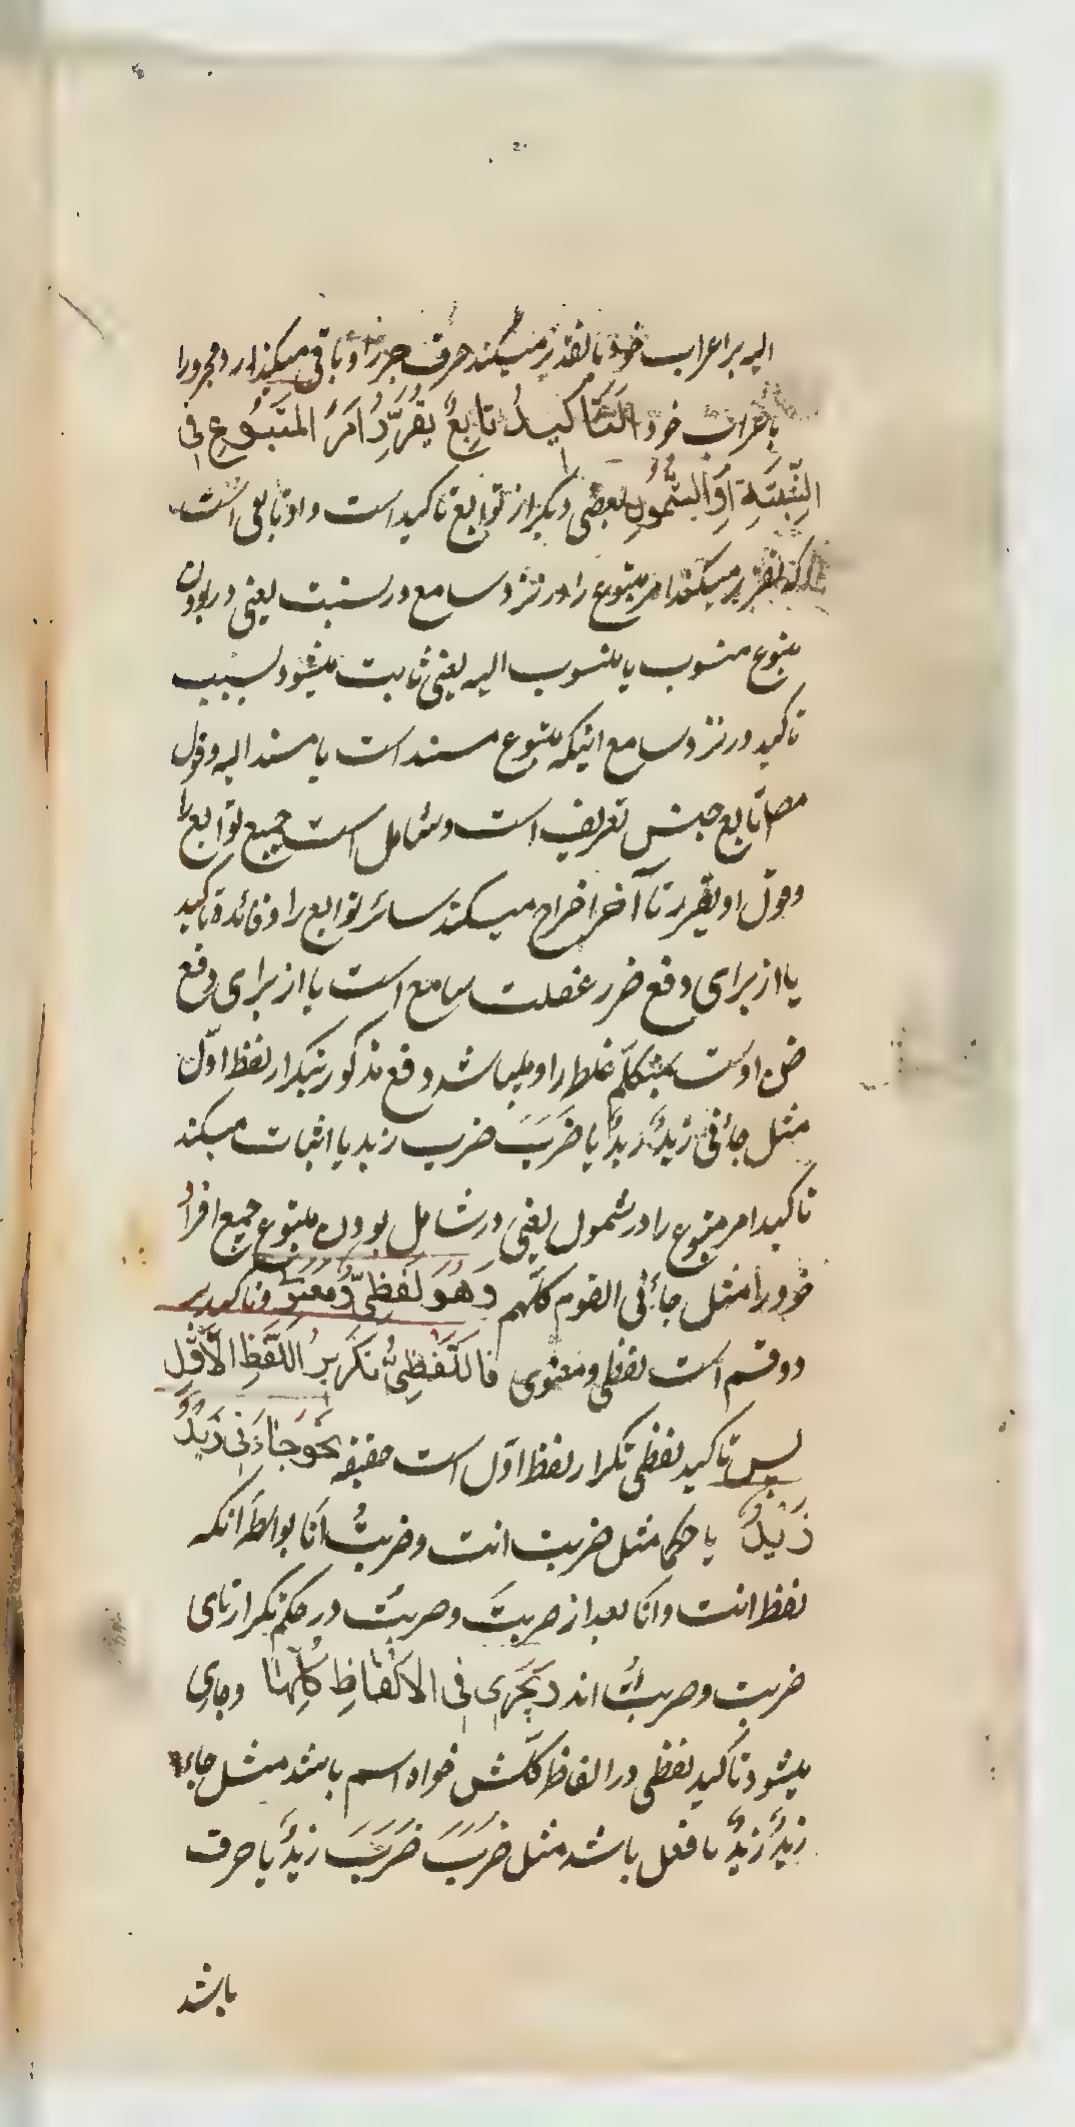 الیه بر اعراب خود یا تقدیر میکند حرف جر را و باقی میکذارد مجرور را
باعراب خود اَلتَّاکیدُ تابِعٌ یُقَرِّرُ اَمرَ المَتبُوعِ فی
النِّسبَةِ اَوِ الشُّمولِ بعضی دیکر از توابع تاکید است و او تابعی است
که تقریر میکند امر متبوع را در نزد سامع در نسبت یعنی در بودن
متبوع منسوب یا منسوب الیه یعنی ثابت میشود بسبب
تاکید در نزد سامع اینکه متبوع مسند است یا مسند الیه و قول
مص تابع جنس تعریف است و شامل است جمیع توابع را
و قول او یقرر تا آخر اخراج میکند سائر توابع را و فائدة تاکید
یا از برای دفع ضرر غفلت سامع است یا از برای دفع
ظن اوست بمتکلم غلط را و میباشد دفع مذکور بتکرار لفظ اوّل
مثل جائنی زیدٌ زیدٌ یا ضَرَبَ ضرب زید یا اثبات میکند
تاکید امر متبوع را در شمول یعنی در شامل بودن متبوع جمیع افراد
خود را مثل جائنی القوم کلّهم وَهُوَ لَفظِیٌّ وَمعنَوِیٌّ و تاکید بر
دو قسم است لفظی و معنوی فاللَّفظِیُّ تَکریرُ اللَّفظِ الاَوَّلِ
پس تاکید لفظی تکرار لفظ اوّل است حقیقه نَحوَ جاءَنی زَیدٌ
زَیدٌ یا حکما مثل ضربت انت و ضربتُ اَنَا بواسطه انکه
لفظ انت و انا بعد از ضربتَ و ضربتُ در حکم تکرار تای
ضربت و ضربتُ اند وَیَجری فی الاَلفاظِ کُلِّها و جاری
میشود تاکید لفظی در الفاظ کلّش خواه اسم باشد مثل جاء
زیدٌ زیدٌ یا فعل باشد مثل ضَرَبَ ضَرَبَ زیدٌ یا حرف
باشد